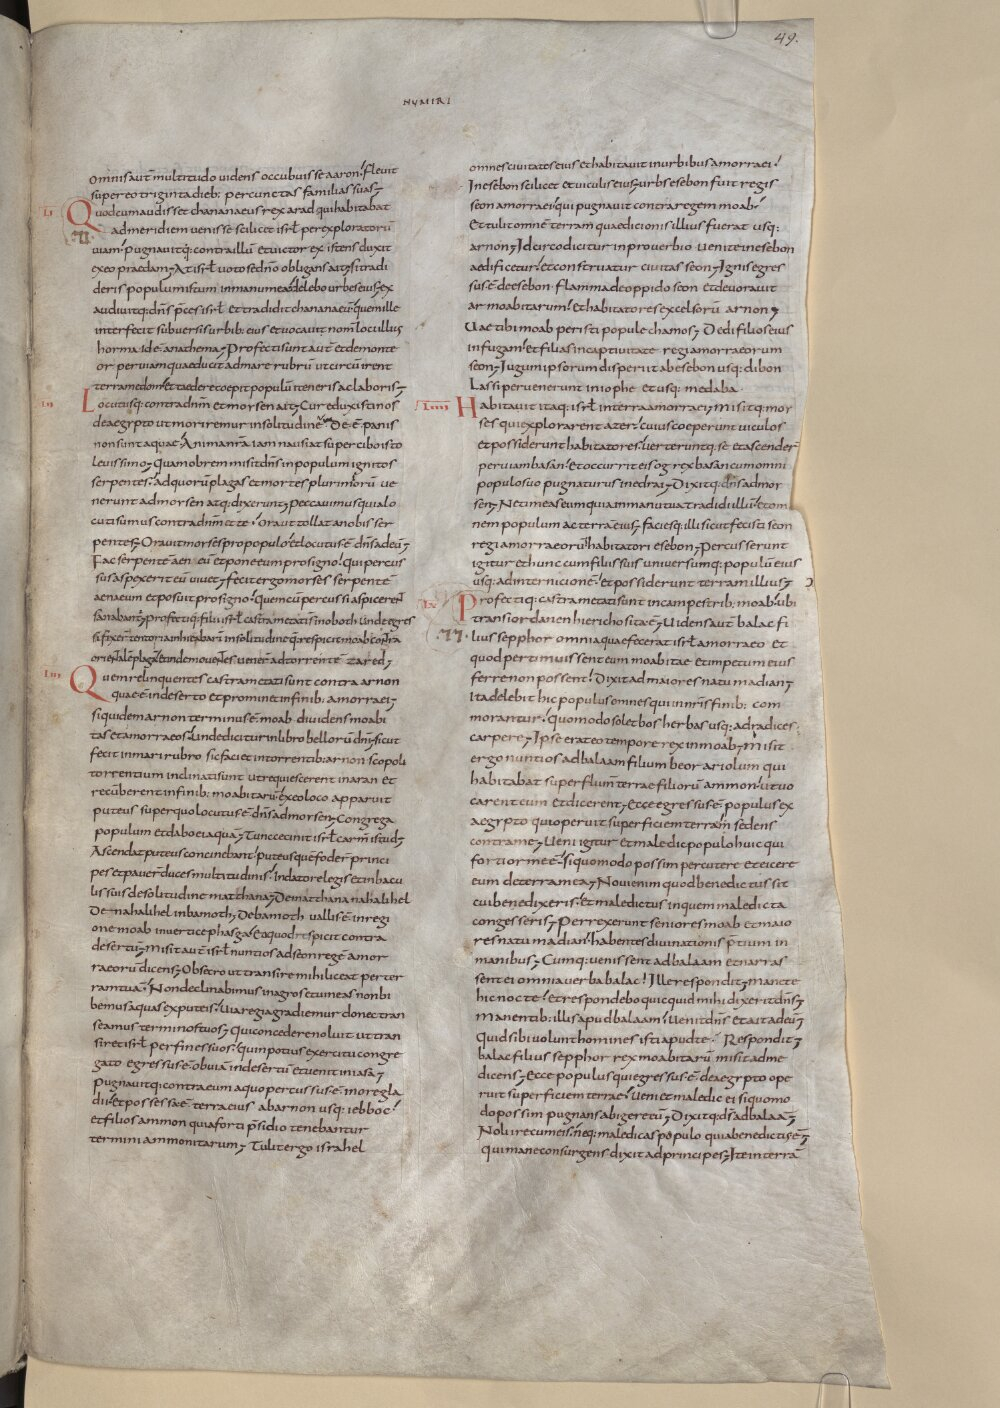 49.
NUMIRI
omnis aut multitudo videns occubuisse aaron. flevit
super eo triginta dieb; per cunctas familias suas;
LI Quod cum audisset chananaeus rex arad qui habitabat
ad meridiem venisse scilicet isrł per exploratorū
viam. pugnavitq; contra illū et victor existens duxit
ex eo praedam; At isrł voto se dño obligans ait; si tradi
deris populum istum in manu mea. delebo urbes eius; ex
audivitq; dñs p̄ces isrł. et tradidit chananaeū. quem ille
interfecit subversis urbib; eius et vocavit nom̄ loci illius
horma id ē anathema; Profecti sunt aut̄ et de monte
or per viam quae ducit ad mare rubrū ut circūirent
terram edom. et taedere coepit populū itineris ac laboris;
LII Locutusq; contra dnm̄ et morsen ait; Cur eduxisti nos
de aegypto ut moriremur in solitudine. De ē panis
non sunt aquae. Anima nr̄a iam nausiat super cibo isto
levissimo; Quam obrem misit dñs in populum ignitos
serpentes. ad quorū plagas et mortes plurimorū ve
nerunt ad morsen atq; dixerunt; Peccavimus quia lo
cuti sumus contra dnm̄ et te. Ora ut tollat a nobis ser
pentes; Oravit morses pro populo. et locutus ē dñs ad eū;
Fac serpentē aen eū et pone eum pro signo. qui percus
sus aspexerit eū vivet; fecit ergo morses serpentē
aeneum et posuit pro signo. quem cū percussi aspicerent
sanabant; profectiq; filii isrł castrametati sunt in oboth. unde egres
si fixer̄ tentoria in hieabarim in solitudine q; respicit moab contra
orientalē plagā. et inde moventes. vener̄ ad torrentē zared;
LIII Quem relinquentes castrametati sunt contra arnon
quae ē in deserto et prominet in finib; amorraei;
siquidem arnon terminus ē moab. dividens moabi
tas et amorraeos. unde dicitur in libro bellorū dnī. sicut
fecit in mari rubro sic faciet in torrentib; arnon scopoli
torrentium inclinati sunt ut requiescerent in aran et
recūberent in finib; moabitarū. ex eo loco apparuit
puteus super quo locutus ē dñs ad morsen; Congrega
populum et dabo ei aquā; Tunc cecinit isrł carm̄ istud;
Ascendat puteus concinebant. puteus quē foder̄ princi
pes et paver̄ duces multitudinis. In datore legis et in bacu
lis suis de solitudine matthana; De matthana nahalihel
De nahalihel in bamoth; De bamoth vallis ē in regi
one moab in vertice phasga. et quod respicit contra
desertū; Misit aut̄ isrł nuntios ad seon regē amor
raeorū dicens; Obsecro ut transire mihi liceat per ter
ram tuā. Non declinabimus in agros et vineas non bi
bemus aquas ex puteis. via regia gradiemur donec tran
seamus terminos tuos; Qui concedere noluit ut tran
siret isrł per fines suos. quin potius exercitu congre
gato egressus ē obviā in desertū et venit in iasa;
pugnavitq; contra eum a quo percussus ē in ore gla
dii. et possessa ē terra eius ab arnon usq; iebboc.
et filios ammon quia forti p̄sidio tenebantur
termini ammonitarum; Tulit ergo israhel
omnes civitates eius et habitavit in urbibus amorraei.
In esebon scilicet et viculis eius; urbs esebon fuit regis
seon amorraei. qui pugnavit contra regem moab.
Et tulit omnē terram quae dicionis illius fuerat usq;
arnon; Idcirco dicitur in proverbio. Venite in esebon
aedificetur. et construatur civitas seon; Ignis egres
sus ē de esebon. flamma de oppido seon et devoravit
ar moabitarum. et habitatores excelsorū arnon;
Vae tibi moab peristi popule chamos; Dedit filios eius
in fugam. et filias in captivitate regi amorraeorum
seon; Iugum ipsorum disperiit ab esebon usq; dibon
Lassi pervenerunt in iophe et usq; medaba
LIIII Habitavit itaq; isrł in terra amorraei; Misitq; mor
ses qui explorarent iazer. cuius coeperunt viculos
et possiderunt habitatores. verteruntq; se et ascender̄
per viam basan. et occurrit eis og rex basan cum omni
populo suo pugnaturus in edrai; Dixitq; dñs ad mor
sen; Ne timeas eum quia in manu tua tradidi illū. et om
nem populum ac terrā eius; faciesq; illi sicut fecisti seon
regi amorraeorū. habitatori esebon; Percusserunt
igitur et hunc cum filiis suis universumq; populū eius
usq; ad internicionē. et possiderunt terram illius;
LV Profectiq; castrametati sunt in campestrib; moab. ubi
trans iordanen hiericho sita ē; Videns aut̄ balac fi
lius sepphor omnia quae fecerat isrł amorraeo et
quod pertimuissent eum moabitae et impetum eius
ferre non possent. Dixit ad maiores natu madian;
Ita delebit hic populus omnes qui in nr̄is finib; com
morantur. quomodo solet bos herbas usq; ad radices
carpere; Ipse erat eo tempore rex in moab; Misit
ergo nuntios ad balaam filium beor ariolum qui
habitabat super flum̄ terrae filiorū ammon. ut vo
carent eum et dicerent; Ecce egressus ē populus ex
aegypto qui operuit superficiem terrae sedens
contra me; Veni igitur et maledic populo huic qui
fortior me ē. si quomodo possim percutere et eicere
eum de terra mea; Novi enim quod benedictus sit
cui benedixeris. et maledictus in quem maledicta
congesseris; Perrexerunt seniores moab et maio
res natu madian. habentes divinationis p̄tium in
manibus; Cumq; venissent ad balaam et narras
sent ei omnia verba balac. Ille respondit; Manete
hic nocte. et respondebo quicquid mihi dixerit dñs;
Manentib; illis apud balaam. venit dñs et ait ad eū;
Quid sibi volunt homines isti apud te. Respondit;
balac filius sepphor rex moabitarū misit ad me
dicens; Ecce populus qui egressus ē de aegypto ope
ruit superficiem terrae. Veni et maledic ei si quomo
do possim pugnans abigere eū; Dixitq; dñs ad balaā;
Noli ire cum eis. neq; maledicas populo quia benedictus ē;
Qui mane consurgens dixit ad principes; Ite in terrā